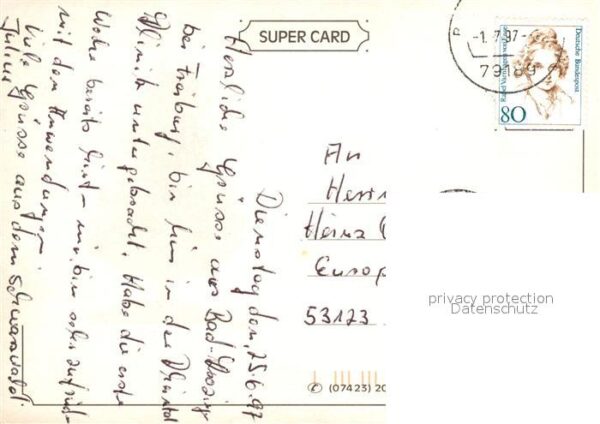 SUPER CARD
-1.7.97-
79189
Deutsche Bundespost
80
Dienstag den, 25.6.97
Herzliche Grüsse aus Bad-Krozingen
bei Freiburg, bin hier in der Rheintal
Klinik untergebracht. Habe die erste
Woche bereits hint- mir, bin sehr zufried-
mit den Anwendungen.
Viele Grüsse aus dem Schwarzwald.
Julius
An
Herrn
Heinz
Europ
53123
privacy protection
Datenschutz
(07423) 20